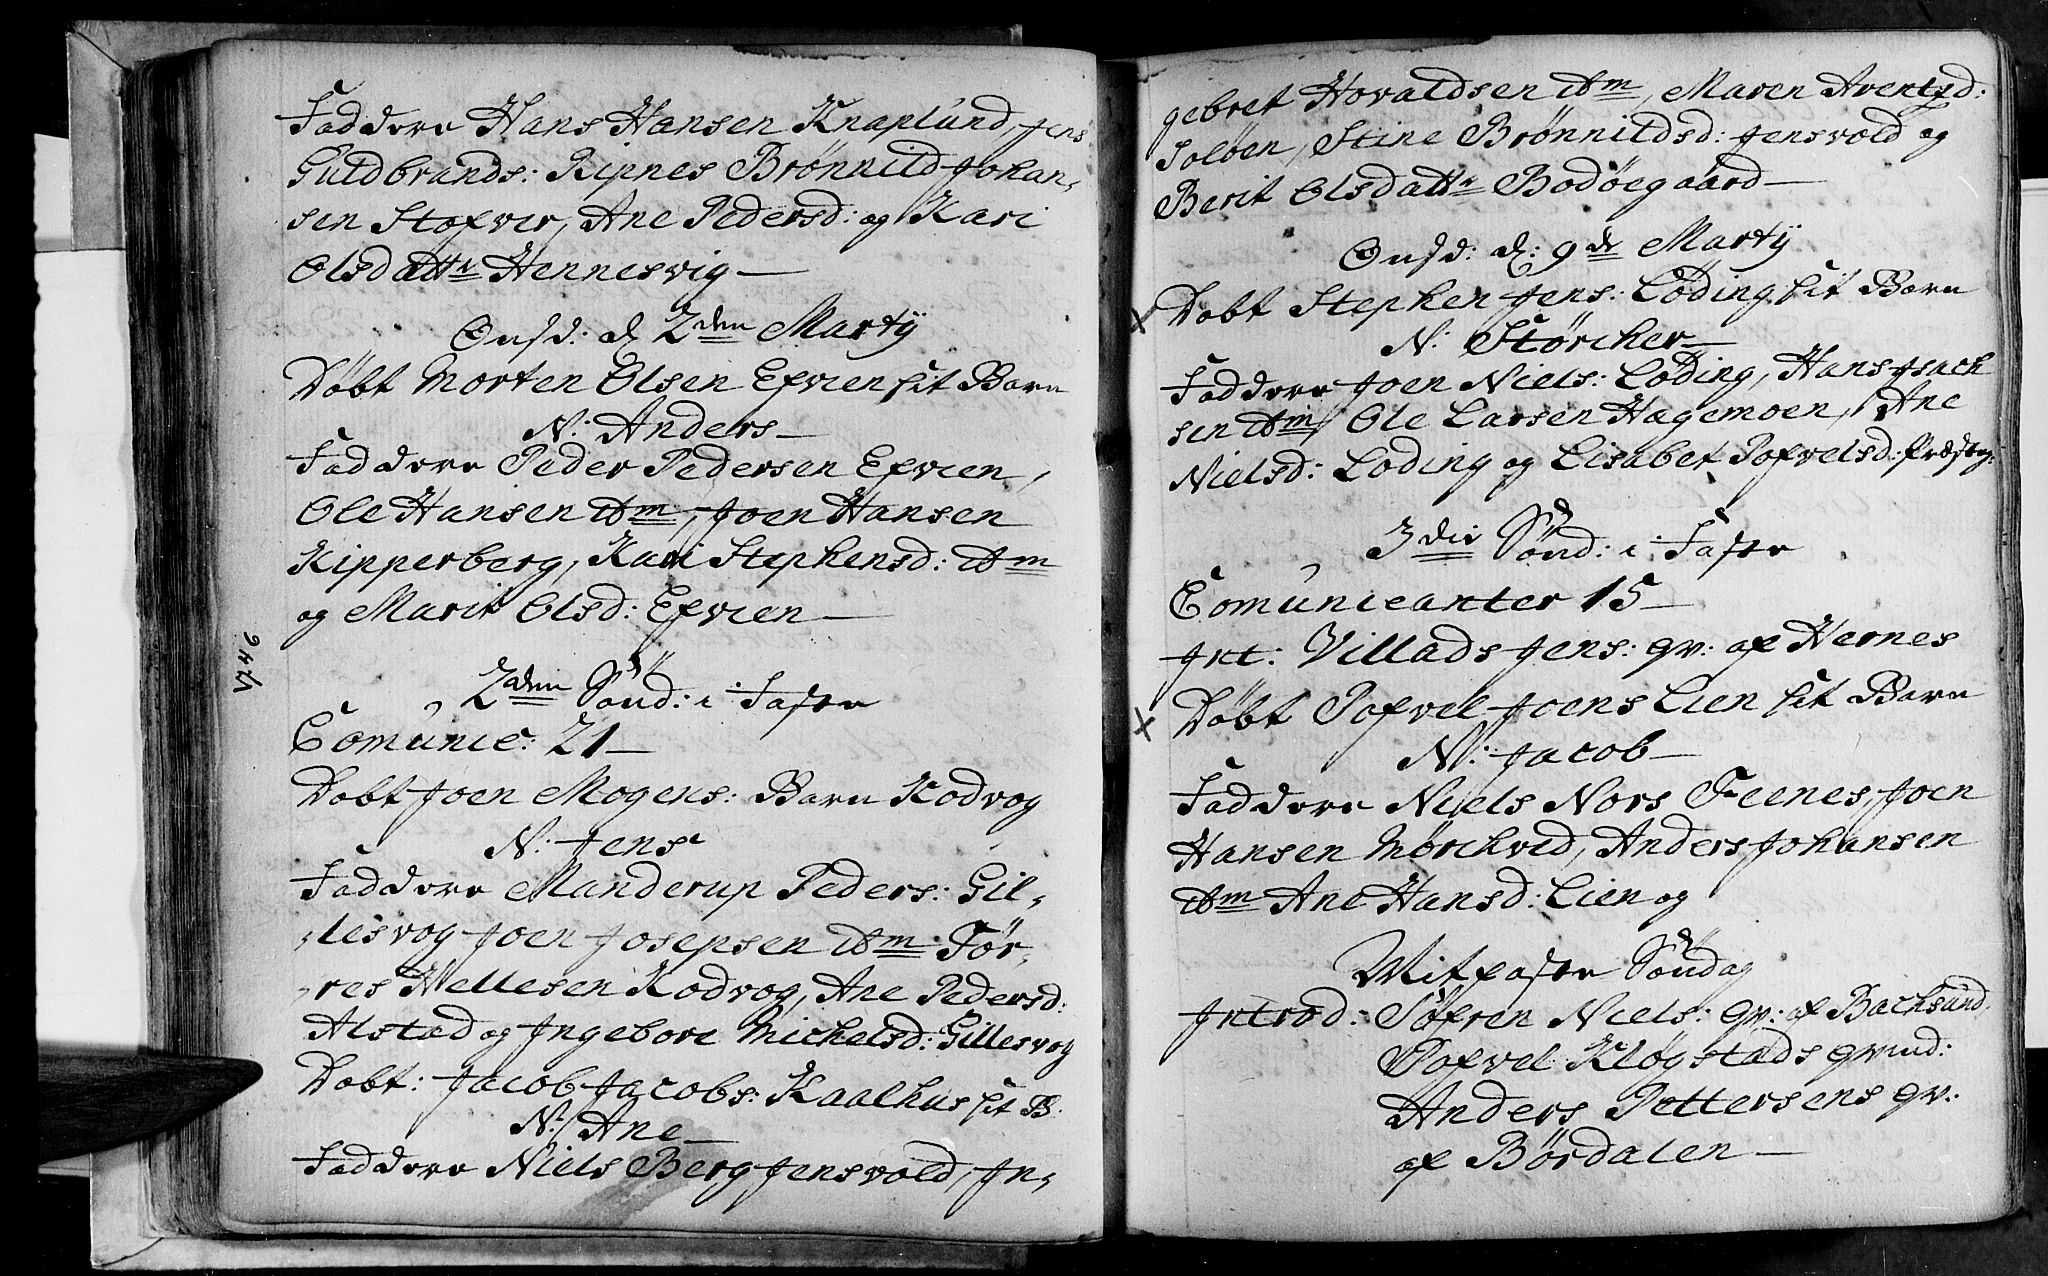 Faddere Hans Hansen Knaplund, Jens
Guldbrands: Ripnes Brønnild Johan-
sen Stofver, Ane Pedersd: og Kari
Olsdattr Hennesvig —
Onsd: d 2den Martÿ
Døbt Morten Olsen Efvien sit Barn
N: Anders —
Faddere Peder Pedersen Efvien,
Ole Hansen ibm, Joen Hansen
Kipperberg, Kari Stephensd: ibm
og Marit Olsd: Efvien —
1746
2den Sønd: i Faste
Comunic: 21 —
Døbt Joen Mogens: Barn Kodvog
N: Jens
Faddere Manderup Peders: Gil-
lesvog Joen Josepsen ibm Tør-
res Hellesen Kodvog, Ane Pedersd:
Alstad og Ingebore Michelsd: Gillesvog
Døbt: Jacob Jacobs: Kaalhus sit B.
N: Ane —
Faddere Niels Berg Jensvold, In-
gebret Hovaldsen ibm, Maren Arentsd:
Soløen, Stine Brønnildsd: Jensvold og
Berit Olsdattr Bodøegaard —
Onsd: d: 9de Martÿ
Døbt Stephen Jens: Løding sit Barn
N: Størcher —
Faddere Joen Niels: Løding, Hans Jsach
sen ibm, Ole Larsen Hagemoen, Ane
Nielsd: Løding og Lisabet Pofvelsd: Præsteg:
3die Sønd: i Faste
Comunicanter 15 —
Int: Villads Jens: qv: af Hernes
Døbt Pofvel Joens Lien sit Barn
N: Jacob —
Faddere Niels Nors Feenes, Joen
Hansen Mørchved, Anders Johansen
ibm Ane Hansd: Lien og
Mitfaste Søndag
Introd: Søfren Niels: qv: af Bachsund,
Pofvel Kløgstads qvind:
Anders Pettersens qv:
af Børdalen —